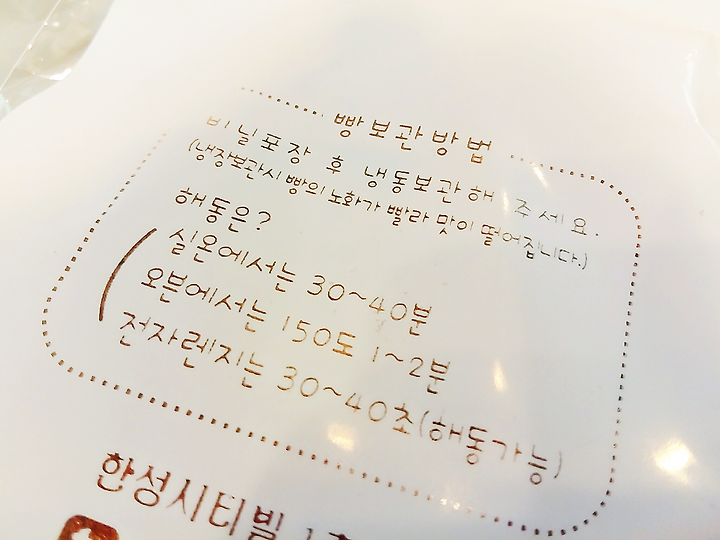 빵보관방법
비닐포장 후 냉동보관해 주세요.
(냉장보관시 빵의 노화가 빨라 맛이 떨어집니다.)
해동은?
실온에서는 30~40분
오븐에서는 150도 1~2분
전자렌지는 30~40초(해동가능)
한성시티빌